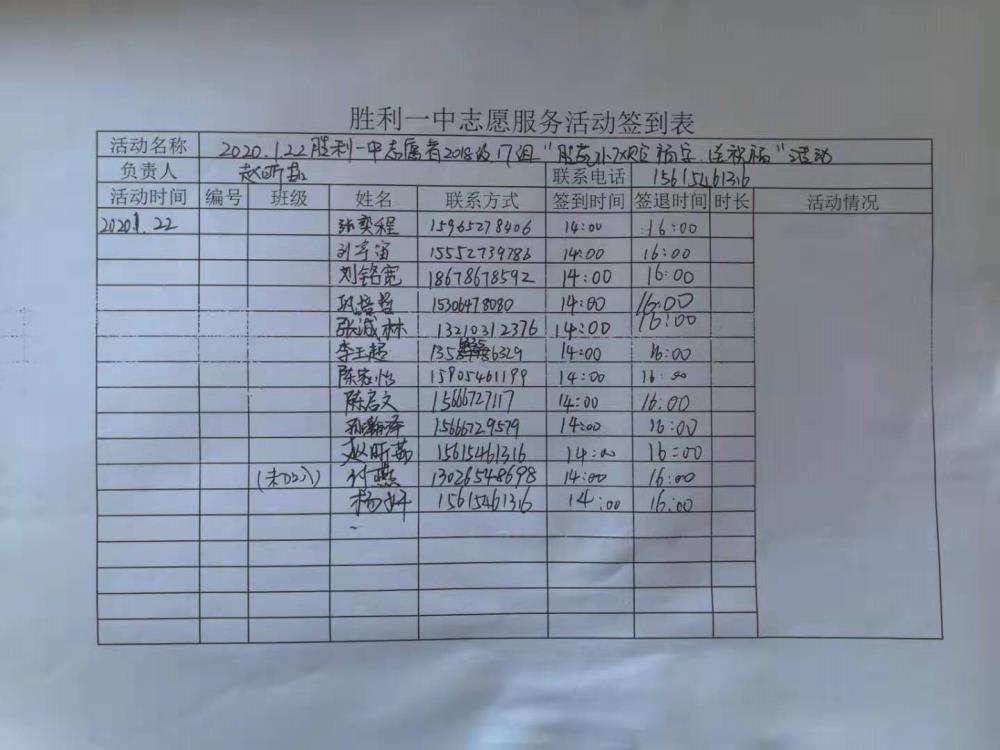 胜利一中志愿服务活动签到表
活动名称 2020.1.22胜利一中志愿者2018级17组“ 福字、送祝福”活动
负责人 赵昕茹 联系电话 15615461316
活动时间 编号 班级 姓名 联系方式 签到时间 签退时间 时长 活动情况
2020.1.22 张奕程 15965278406 14:00 16:00
刘宇宙 15552739786 14:00 16:00
刘铭宽 18678678592 14:00 16:00
15306478080 14:00 16:00
张诚林 13210312376 14:00 16:00
李玉超 14:00 16:00
陈家怡 15905461199 14:00 16:00
陈启文 15666727117 14:00 16:00
孙瀚泽 15666729579 14:00 16:00
赵昕茹 15615461316 14:00 16:00
(未加入) 付燕 13026548698 14:00 16:00
杨妍 15615461316 14:00 16:00